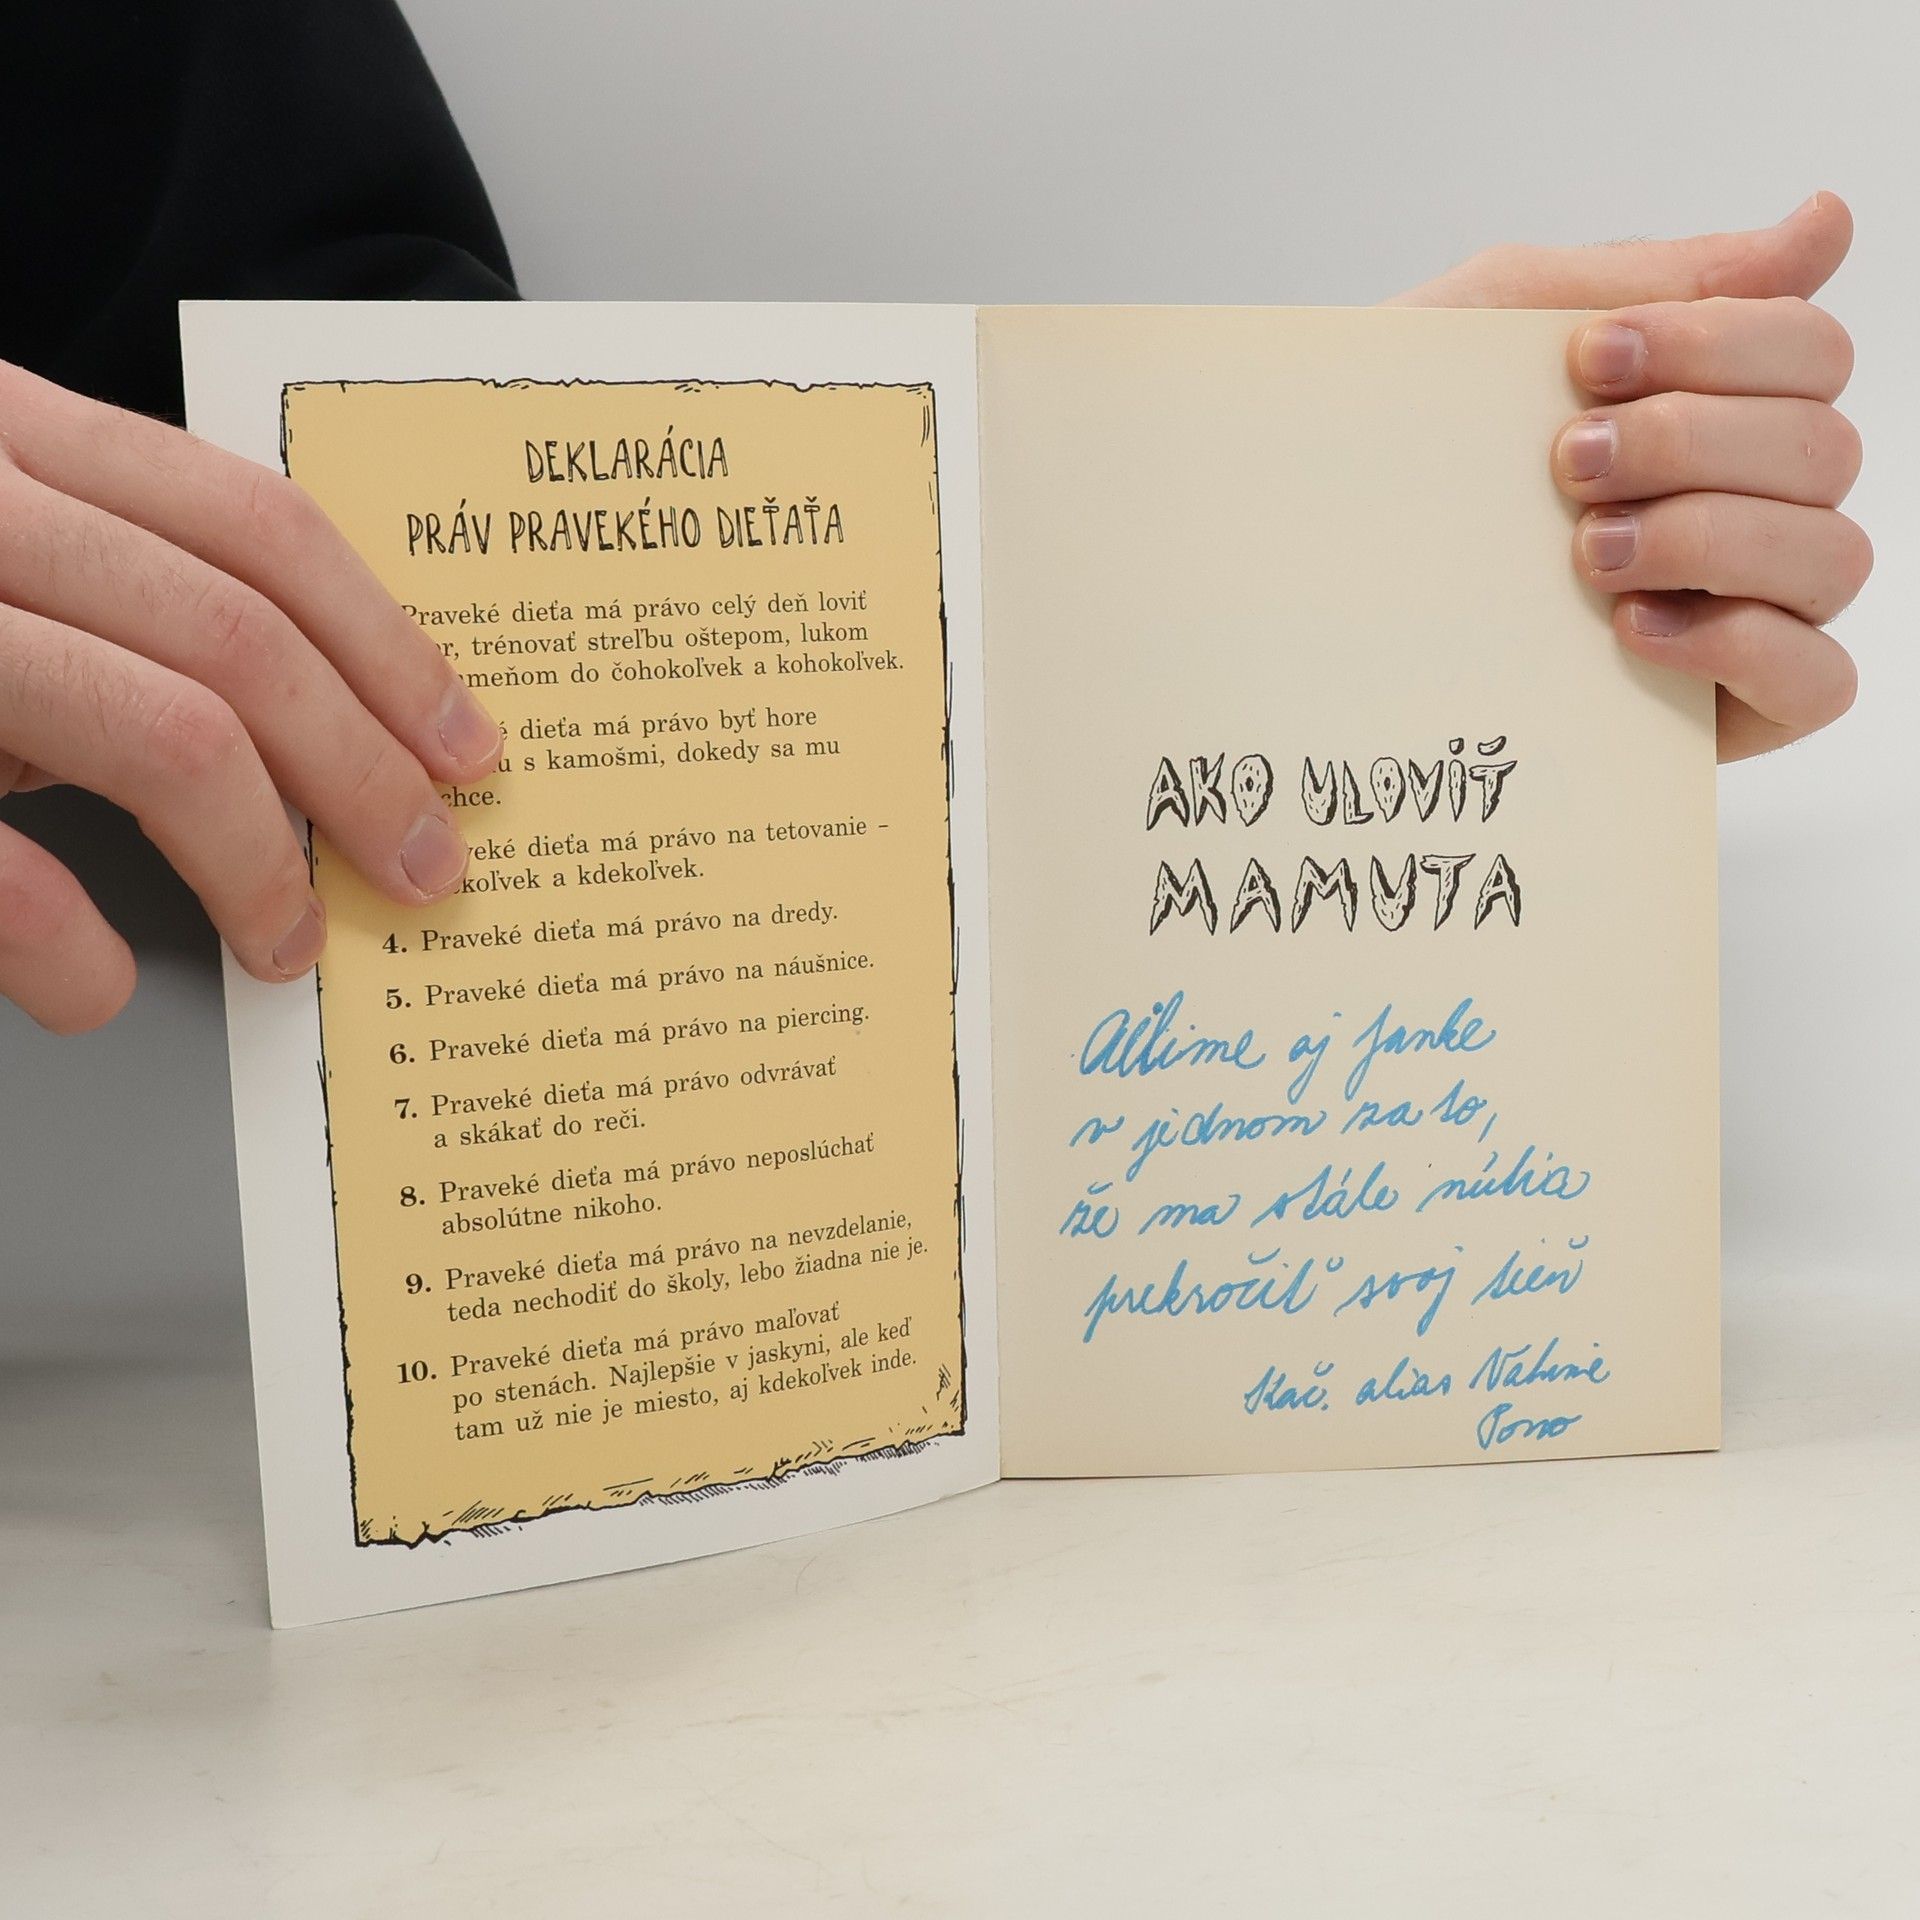 DEKLARÁCIA
PRÁV PRAVEKÉHO DIEŤAŤA
Praveké dieťa má právo celý deň loviť
trénovať streľbu oštepom, lukom
do čohokoľvek a kohokoľvek.
dieťa má právo byť hore
s kamošmi, dokedy sa mu
chce.
dieťa má právo na tetovanie –
a kdekoľvek.
4. Praveké dieťa má právo na dredy.
5. Praveké dieťa má právo na náušnice.
6. Praveké dieťa má právo na piercing.
7. Praveké dieťa má právo odvrávať
a skákať do reči.
8. Praveké dieťa má právo neposlúchať
absolútne nikoho.
9. Praveké dieťa má právo na nevzdelanie,
teda nechodiť do školy, lebo žiadna nie je.
10. Praveké dieťa má právo maľovať
po stenách. Najlepšie v jaskyni, ale keď
tam už nie je miesto, aj kdekoľvek inde.
AKO ULOVIŤ
MAMUTA
aj Janke
v jednom za to,
že ma stále núti a
prekročiť svoj tieň
alias